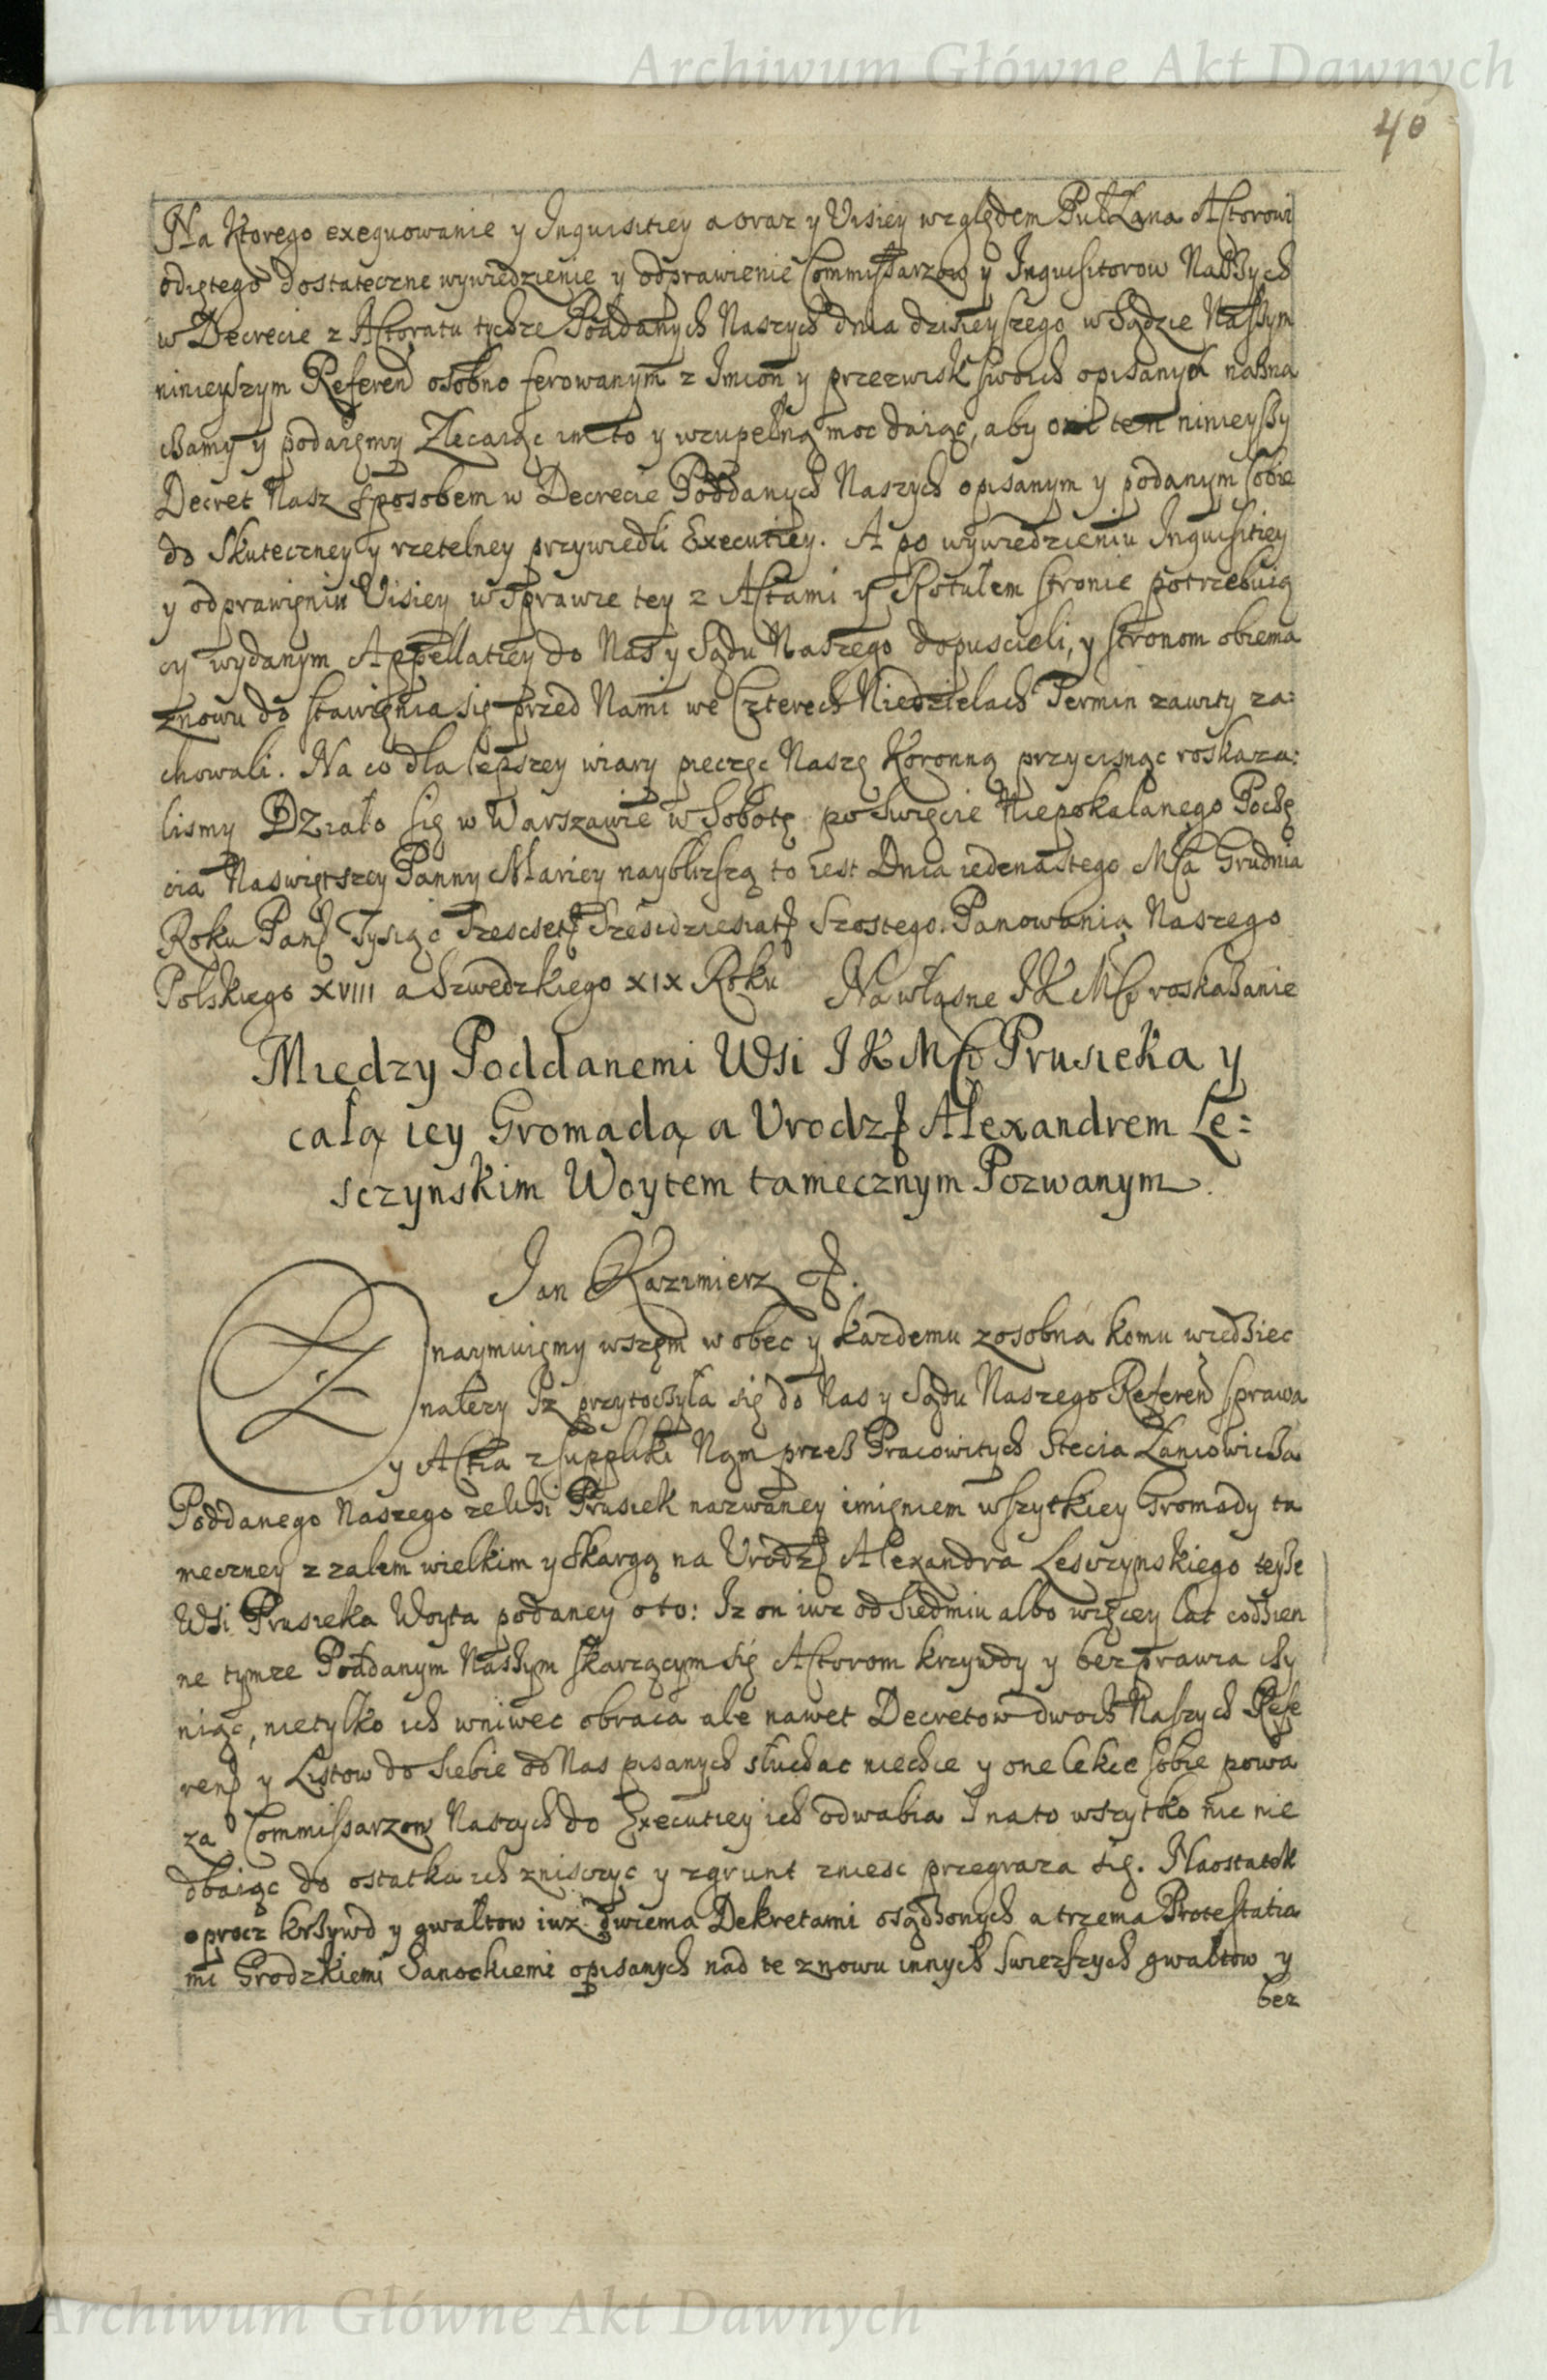 Archiwum Główne Akt Dawnych
40
Na ktorego exequowanie y Inquisitiey a oraz y Visiey względem PułŁana Actorowi
odiętego dostateczne wywiedzienie y odprawienie Commissarzow y Inquisitorow Naszych
w Decrecie z Actoratu tychze Poddanych Naszych dnia dzisieyszego w Sądzie Naszym
ninieyszym Referen osobno ferowanym z Imion y przezwisk swoich opisanych nazna
czamy y podaiemy Zlecaiąc im to y wzupełną moc daiąc, aby oni ten ninieyszy
Decret Nasz sposobem w Decrecie Poddanych Naszych opisanym y podanym sobie
do skuteczney y rzetelney przywiedli Executiey. A po wywiedzieniu Inquisitiey
y odprawieniu Visiey w sprawie tey z Actami y Rotułem stronie potrzebuią
cy wydanym Appellatiey do Nas y Sądu Naszego dopuscieli, y stronom obiema
znowu do stawienia się przed Nami we Czterech Niedzielach Termin zawity za:
chowali. Na co dla lepszey wiary pieczęc Naszę Koronną przycisnąc roskaza:
lismy Działo się w Warszawie w Sobotę po Swięcie Niepokalanego Poczę
cia Naswiętszey Panny Mariey naybliszszą to iest Dnia iedenastego Msca Grudnia
Roku Pans Tysiąc Szescset Szescdziesiąt Szostego. Panowania Naszego
Polskiego XVIII a Szwedzkiego XIX Roku Na własne JKMśći roskazanie
Miedzy Poddanemi Wsi JKMśći Prusieka y
całą iey Gromadą a Vrodz Alexandrem Le:
sczynskim Woytem tamecznym Pozwanym.
Jan Kazimierz &.
Znaymuiemy wszem wobec y kazdemu zosobna komu wiedziec
nalezy Iz przytoczyła się do Nas y Sądu Naszego Referen sprawa
y Actia z suppliki Nam przez Pracowitych Stecia Łaniowicza
Poddanego Naszego ze Wsi Prusiek nazwaney imieniem wszytkiey Gromady ta
meczney z zalem wielkim y skargą na Vrodz Alexandra Lesczynskiego teyze
Wsi Prusieka Woyta podaney o to: Iz on iuz od siedmiu albo więcey lat codzien
ne tymze Poddanym Naszym skarzącym się Actorom krzywdy y bezprawia czy
niąc, nietylko ich wniwec obraca ale nawet Decretow dwoch Naszych Refe
ren y Listow do siebie od Nas pisanych słuchac niechce y one lekce sobie powa
za Commissarzow Naszych do Executiey ich odwabia I na to wszytko nic nie
dbaiąc do ostatka ich zniszczyc y zgrunt zniesc przegraza się. Naostatek
oprocz krzywd y gwałtow iuz dwiema Dekretami osądzonych a trzema Protestatia
mi Grodzkiemi Sanockiemi opisanych nad te znowu innych swiezszych gwałtow y
bez
Archiwum Główne Akt Dawnych